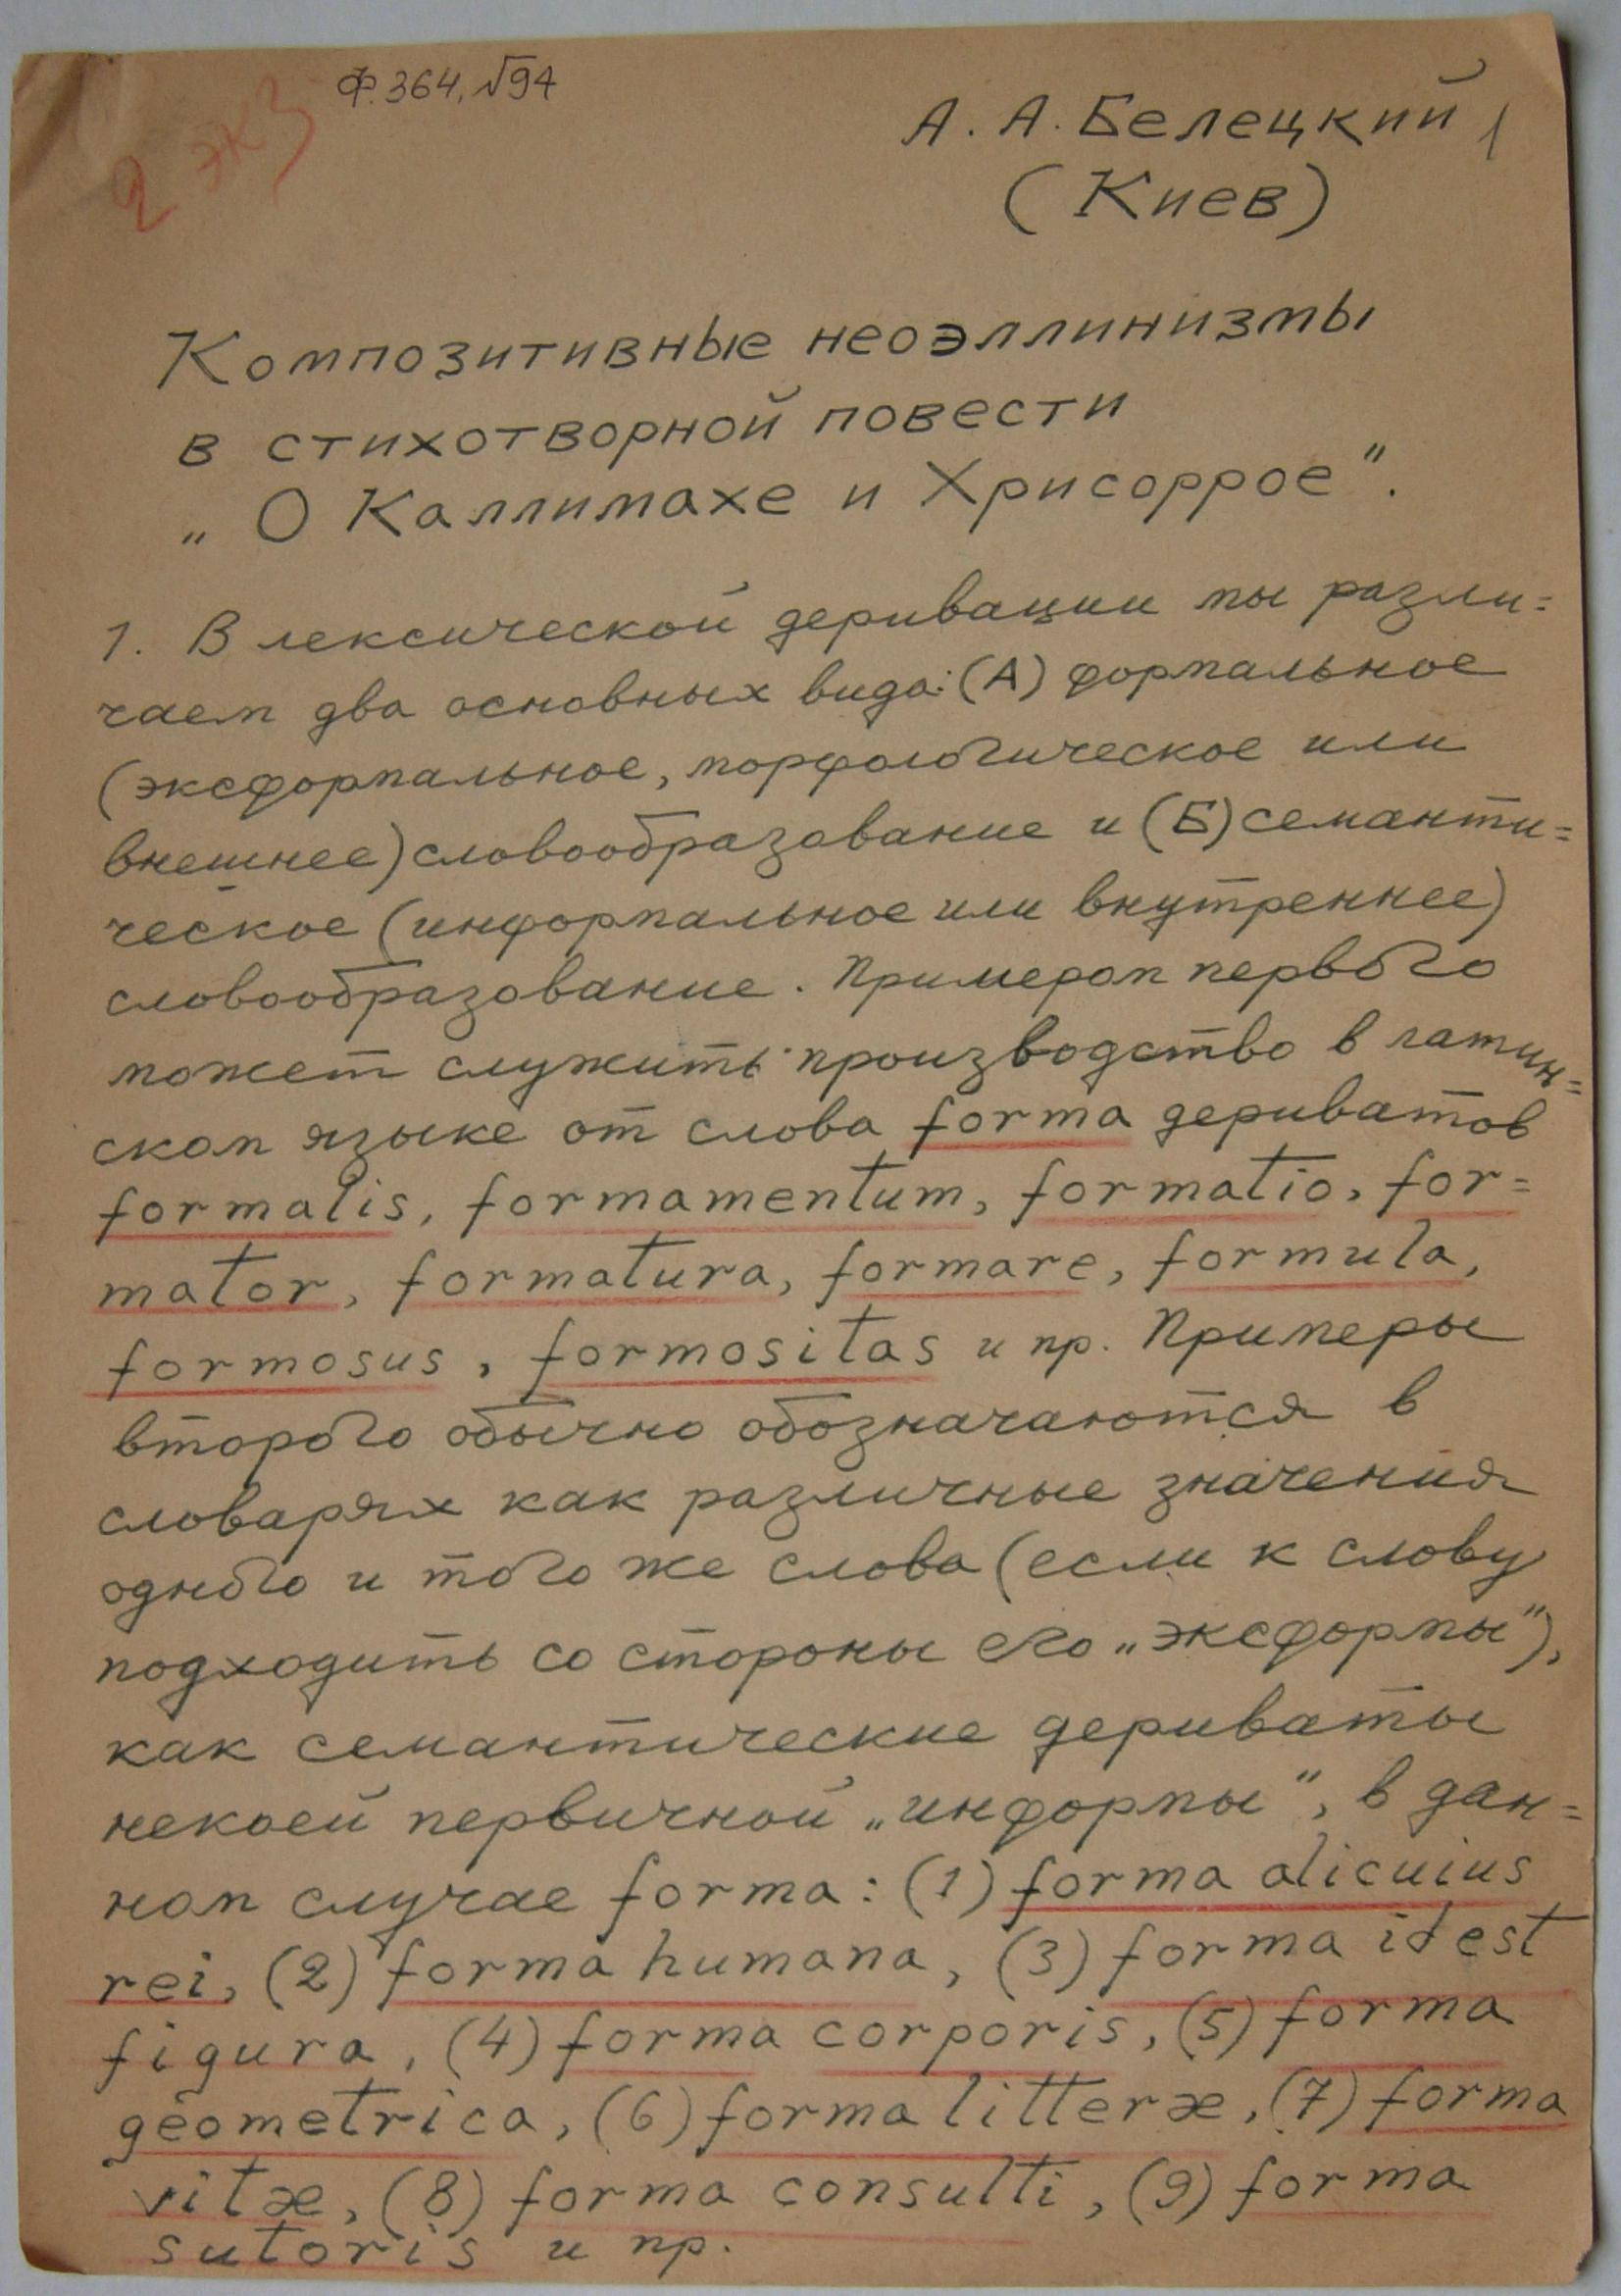 Ф. 364, №94
2 экз
А. А. Белецкий
(Киев)
Композитивные неоэллинизмы
в стихотворной повести
„О Каллимахе и Хрисоррое".
1. В лексической деривации мы разли=
чаем два основных вида: (А) формальное
(эксформальное, морфологическое или
внешнее) словообразование и (Б) семанти=
ческое (информальное или внутреннее)
словообразование. Примером первого
может служить производство в латин=
ском языке от слова forma дериватов
formalis, formamentum, formatio, for=
mator, formatura, formare, formula,
formosus, formositas и пр. Примеры
второго обычно обозначаются в
словарях как различные значения
одного и того же слова (если к слову
подходить со стороны его „эксформы"),
как семантические дериваты
некоей первичной „информы", в дан=
ном случае forma: (1) forma alicuius
rei, (2) forma humana, (3) forma id est
figura, (4) forma corporis, (5) forma
geometrica, (6) forma litteræ, (7) forma
vitæ, (8) forma consulti, (9) forma
sutoris и пр.